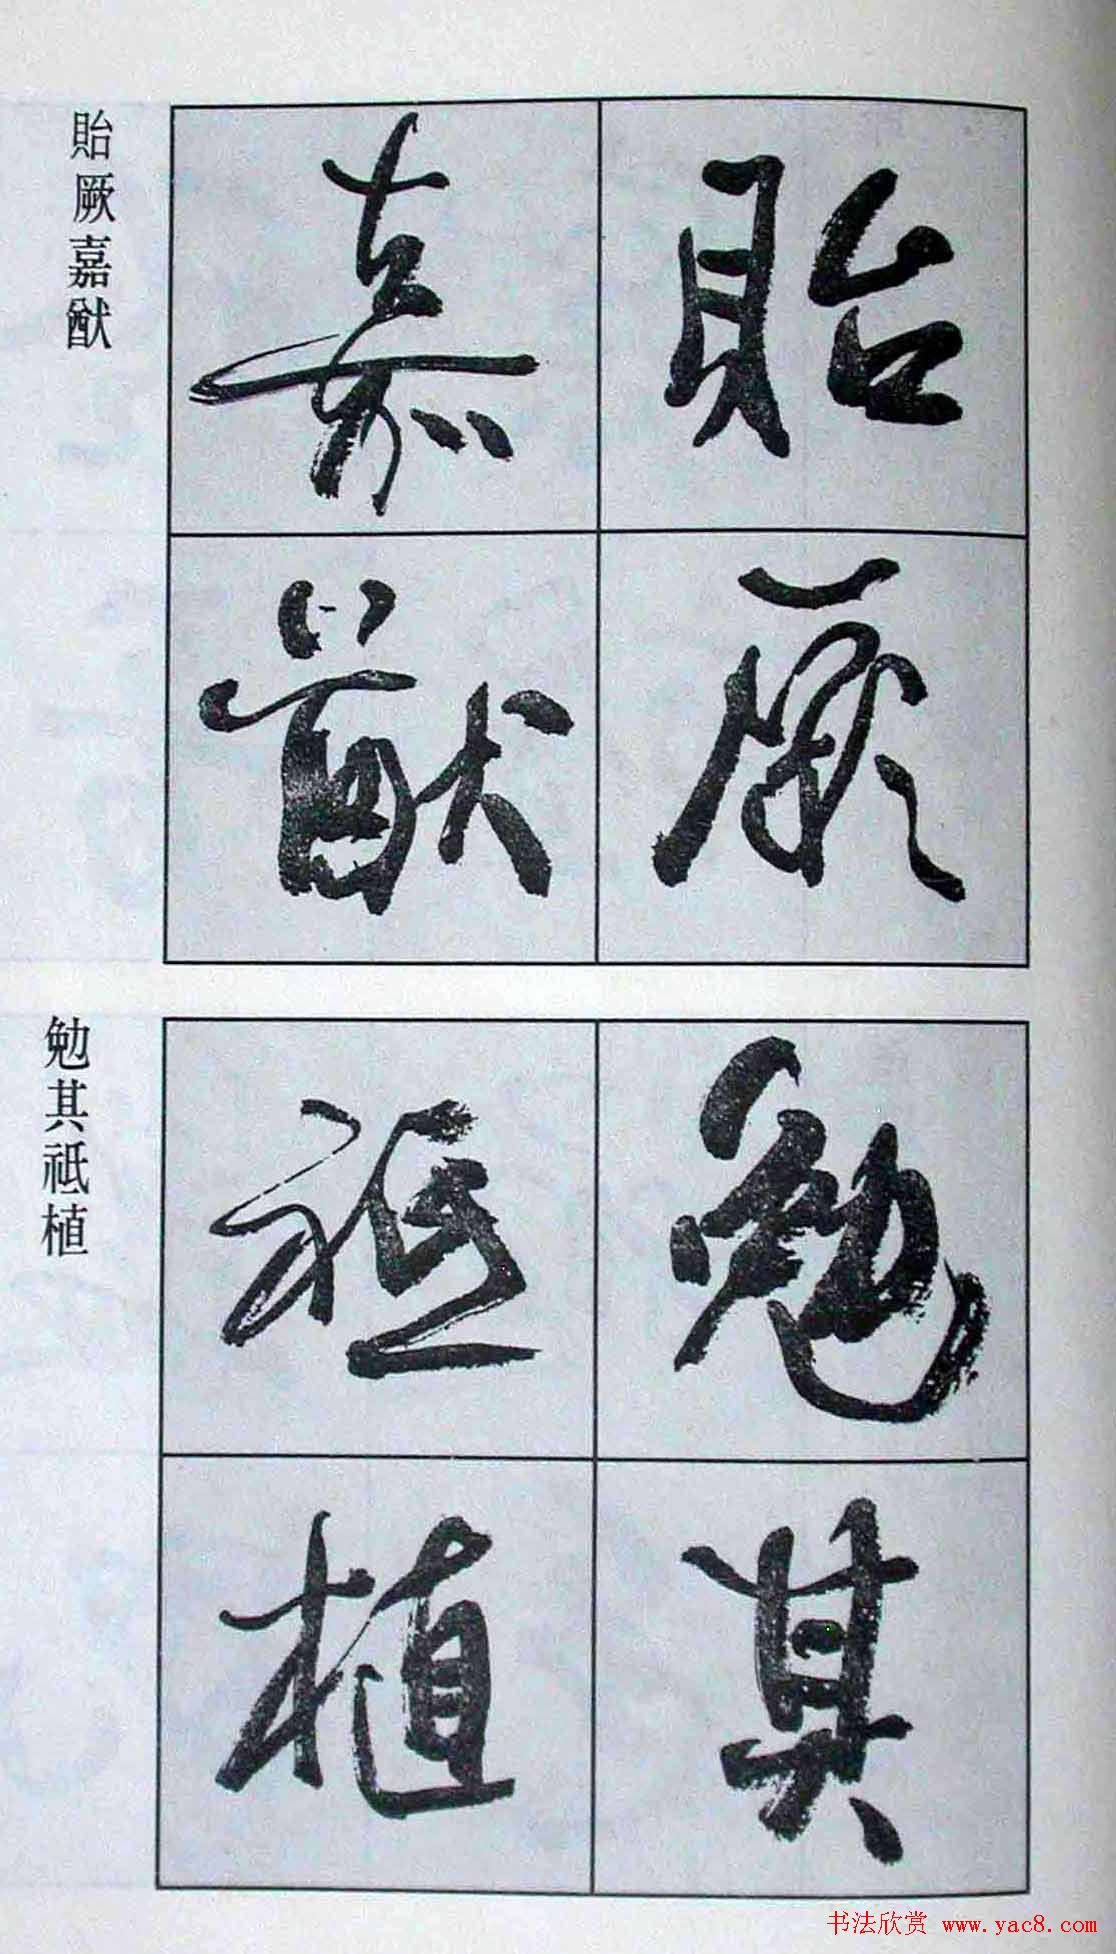 貽厥嘉猷
貽厥
嘉猷
勉其祗植
勉其
祗植
书法欣赏 www.yac8.com